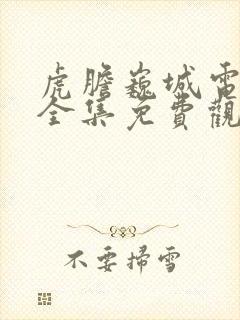 虎膽巍城電
全集免費觀
不要掃雪